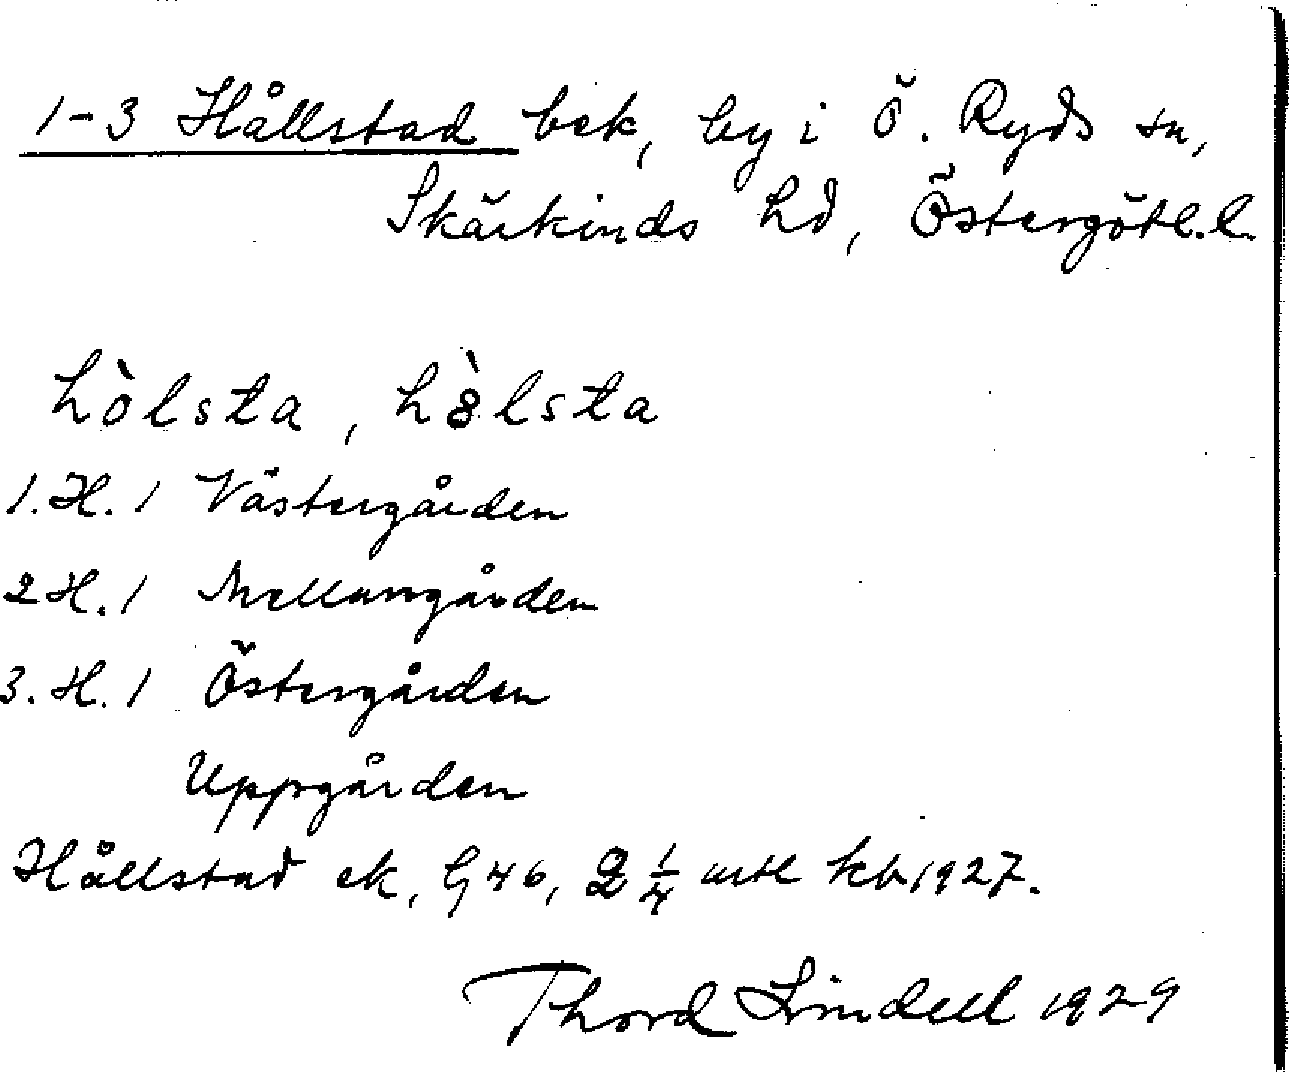 1-3 Hållstad bek, by i Ö. Ryds sn,
Skärkinds hd, Östergötl. l.
hòlsta, hòlsta
1. H. 1 Västergården
2 H. 1 Mellangården
3. H. 1 Östergården
Uppgården
Hållstad ek, G 46, 2 1/4 mtl kb 1927.
Thord Lindell 1929